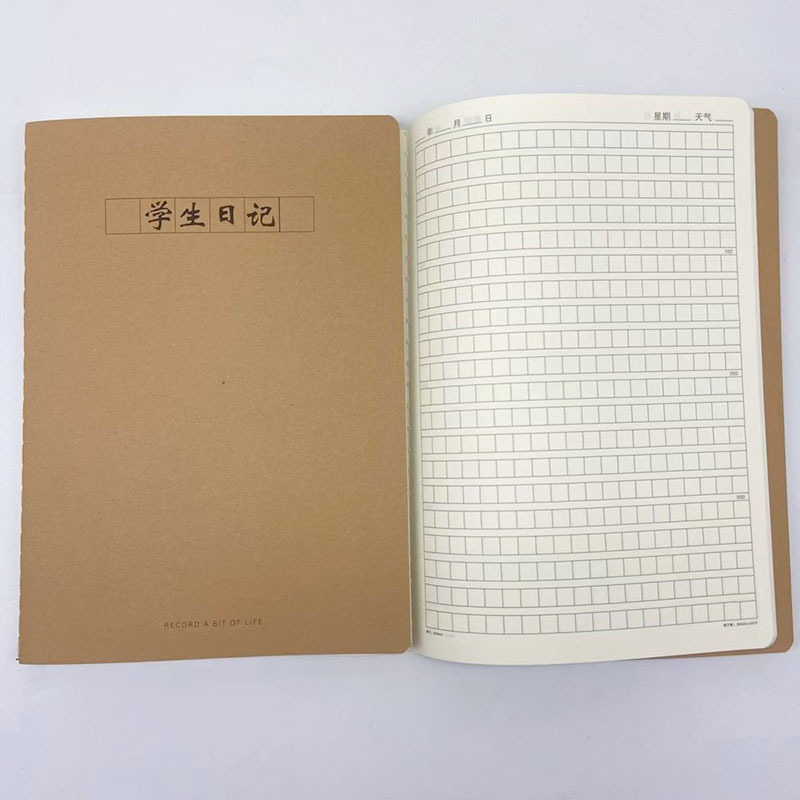 学生日记
RECORD A BIT OF LIFE
年 月 日 星期 天气
100
200
300